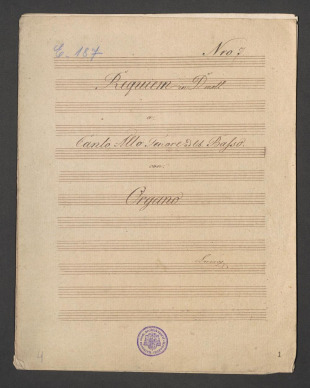 E. 187
Nro 7
Requiem in D moll
a
Canto Alto Tenore
con
Organo
1